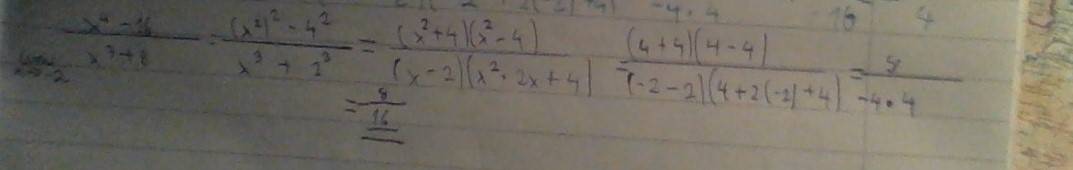 x⁴ - 16 / x³ + 8 = (x²)² - 4² / x³ + 2³ = (x² + 4)(x² - 4) / (x - 2)(x² + 2x + 4) = (4 + 4)(4 - 4) / (-2 - 2)(4 + 2(-2) + 4) = 8 / -4 • 4
= 8 / 16